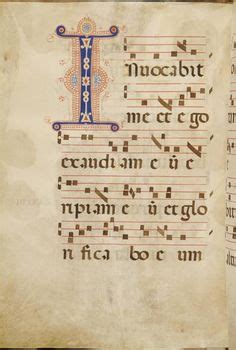 Inuocabit
me et e go
exaudi am e ū e
ripiam e ū et glo
ri fica bo e um